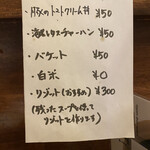 のトマトクリーム丼 ¥50
レタスチャーハン ¥50
・バケット ¥50
・白米 ¥0
・リゾット(おすすめ) ¥300
(残ったスープを使って
リゾットを作ります)